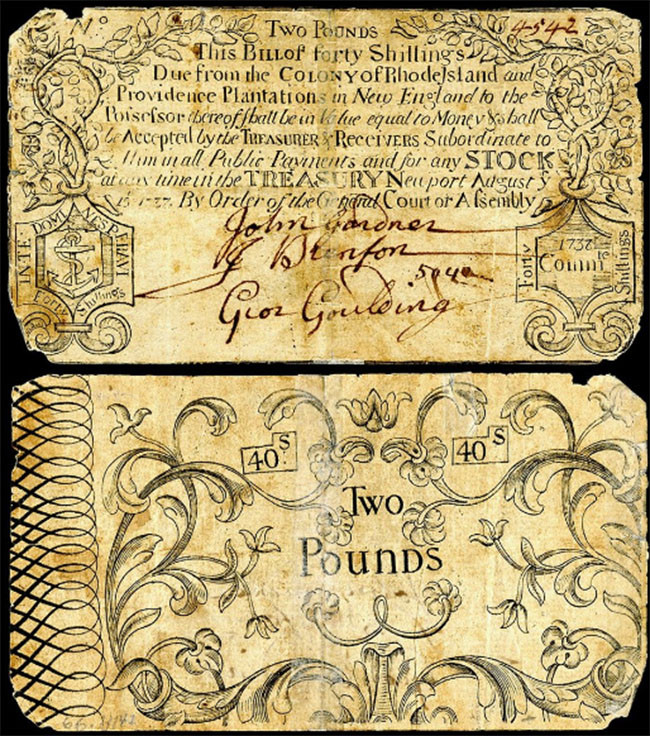 No
4542
Two Pounds
This Bill of forty Shillings
Due from the COLONY of Rhode Island and
Providence Plantations in New England to the
Possessor thereof shall be in Value equal to Money & shall
be Accepted by the TREASURER & RECEIVERS Subordinate to
Him in all Public Payments and for any STOCK
at any time in the TREASURY Newport August ye
1737. By Order of the General Court or Assembly
John Gardner
5040
Geor Goulding
INTE DOMI NE SPERAVI
Forty Shillings
Forty
1737
Comm
Shillings
40.S
40S
Two
Pounds